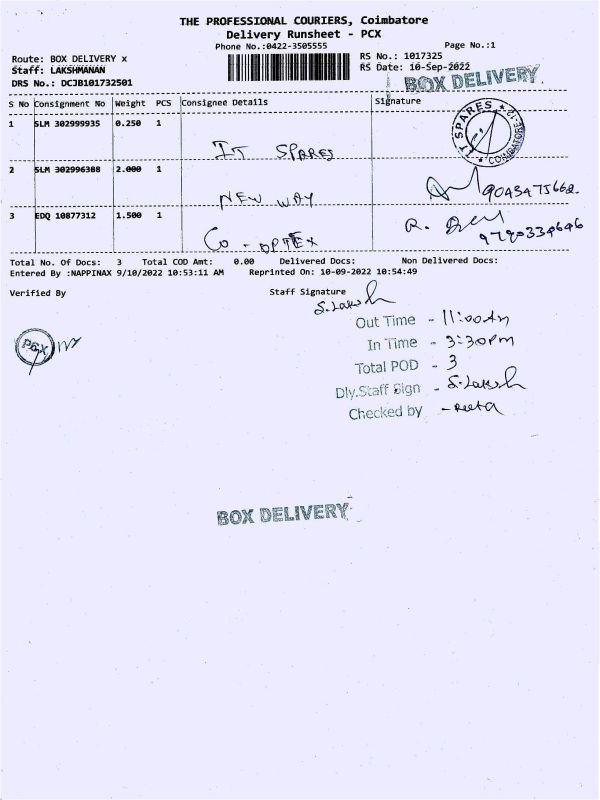 THE PROFESSIONAL COURIERS, Coimbatore
Delivery Runsheet - PCX
Phone No.:0422-3505555 Page No.:1
Route: BOX DELIVERY x RS No.: 1017325
Staff: LAKSHMANAN RS Date: 10-Sep-2022
DRS No.: DCJB101732501 BOX DELIVERY
S No Consignment No Weight PCS Consignee Details Signature
1 SLM 302999935 0.250 1
IT SPARES
IT SPARES * COIMBATORE-12 *
2 SLM 302996388 2.000 1
NEW WAY
3 EDQ 10877312 1.500 1
CO-OPTEX
9790334646
Total No. Of Docs: 3 Total COD Amt: 0.00 Delivered Docs: Non Delivered Docs:
Entered By :NAPPINAX 9/10/2022 10:53:11 AM Reprinted On: 10-09-2022 10:54:49
Verified By Staff Signature
S. Laksh
Out Time - 11:00Am
PCX In Time - 3:30pm
Total POD - 3
Dly.Staff Sign - S. Laksh
Checked by - Reeta
BOX DELIVERY